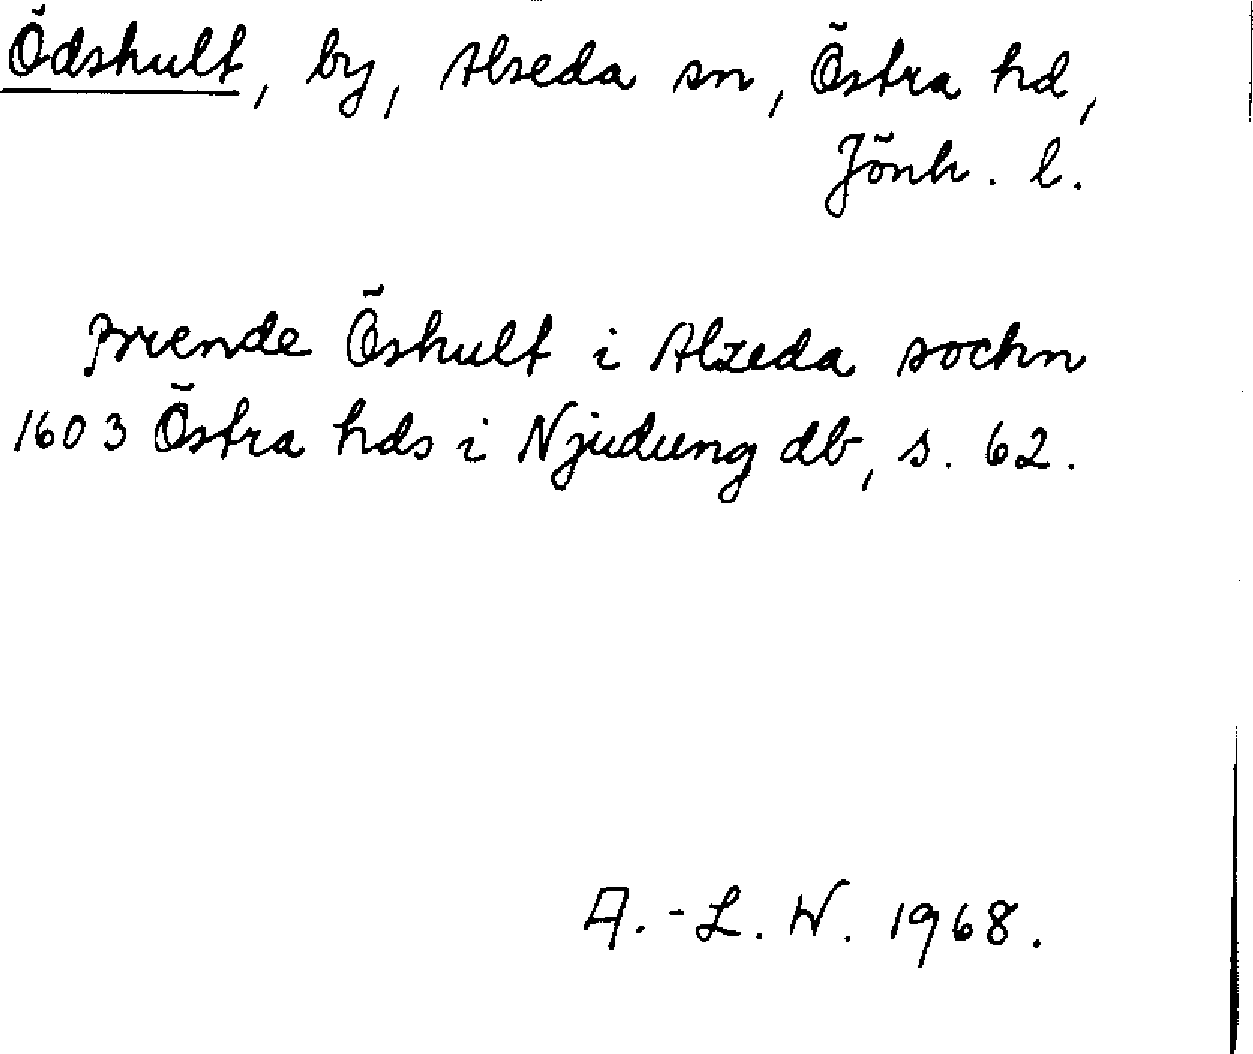 Ödshult, by, Alseda sn, Östra hd,
Jönk. l.
Öshult i Alzeda sochn
1603 Östra hds i Njudung db, s. 62.
A.-L. W. 1968.